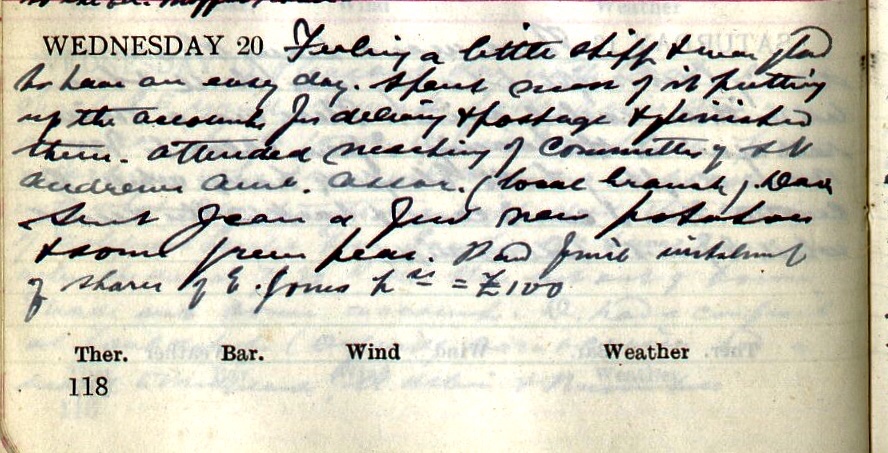 WEDNESDAY 20 Feeling a little stiff & was glad
to have an easy day. Spent most of it putting
up the accounts for delivery & postage & finished
them. Attended meeting of Committee of St
Andrews Amb. Assoc. (local branch). Dad
sent Jean a few new potatoes
& some green peas. Paid first instalment
of shares of E. Jones = £100
Ther. Bar. Wind Weather
118